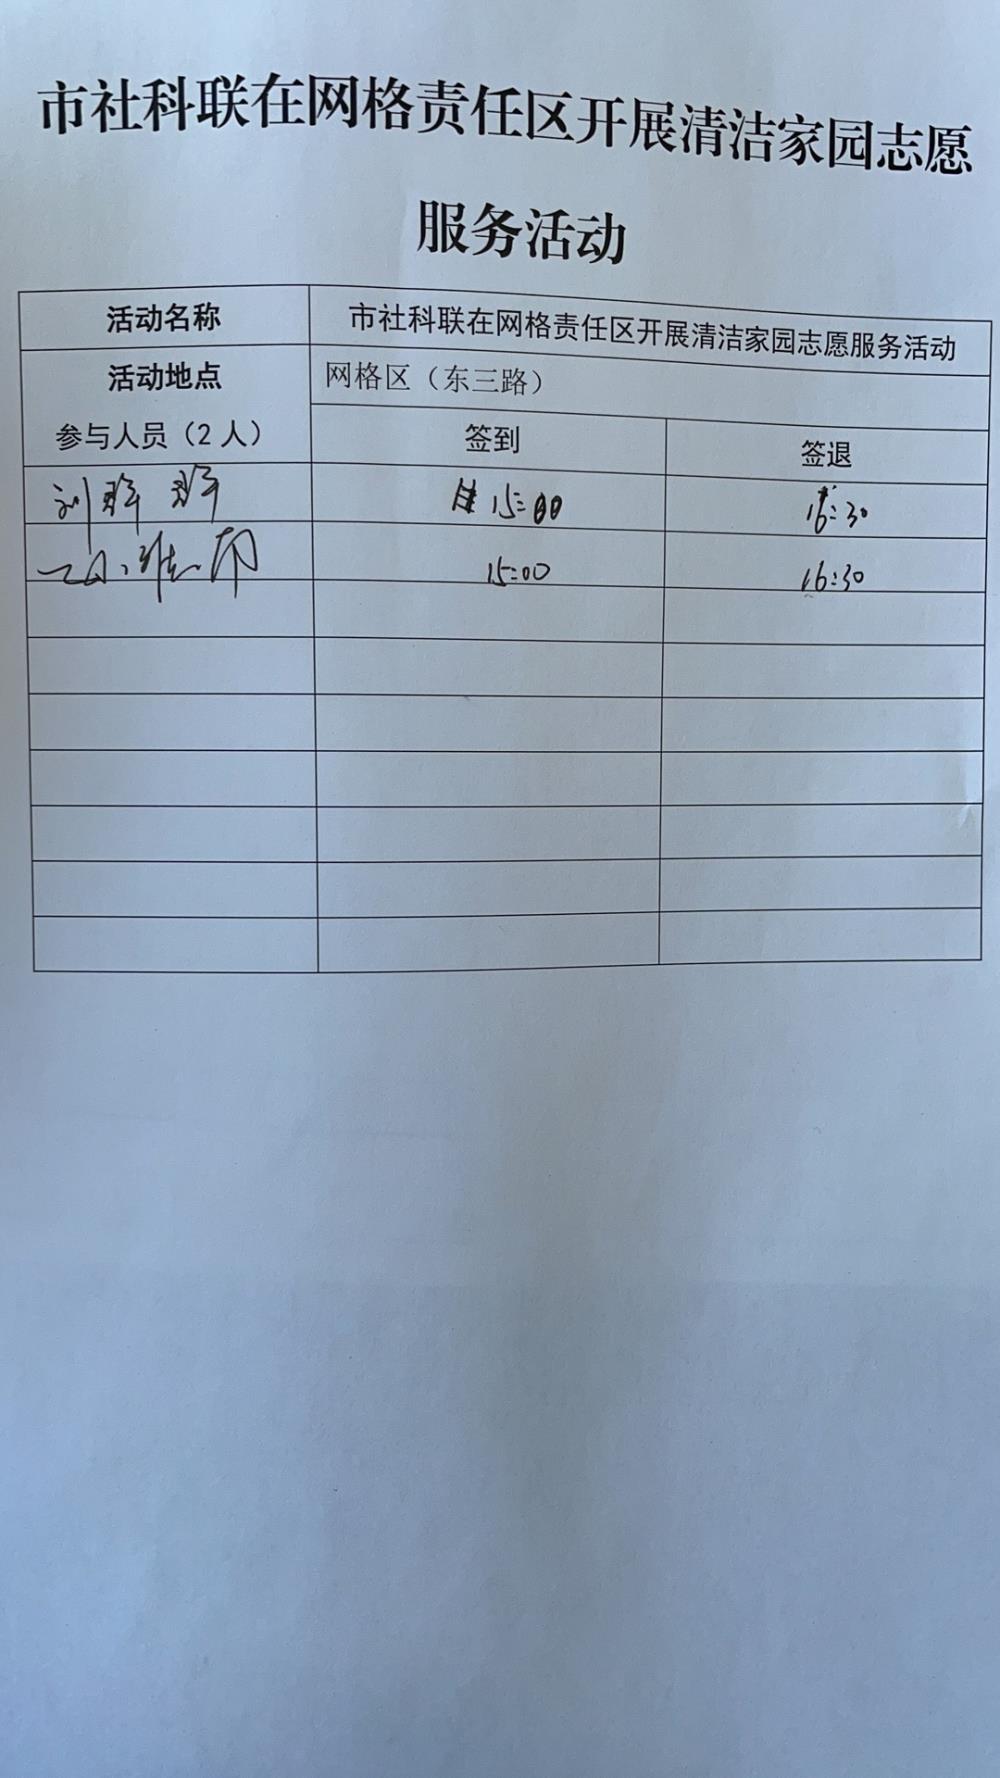 市社科联在网格责任区开展清洁家园志愿
服务活动
活动名称 市社科联在网格责任区开展清洁家园志愿服务活动
活动地点 网格区（东三路）
参与人员（2 人） 签到 签退
刘 15:00 16:30
15:00 16:30